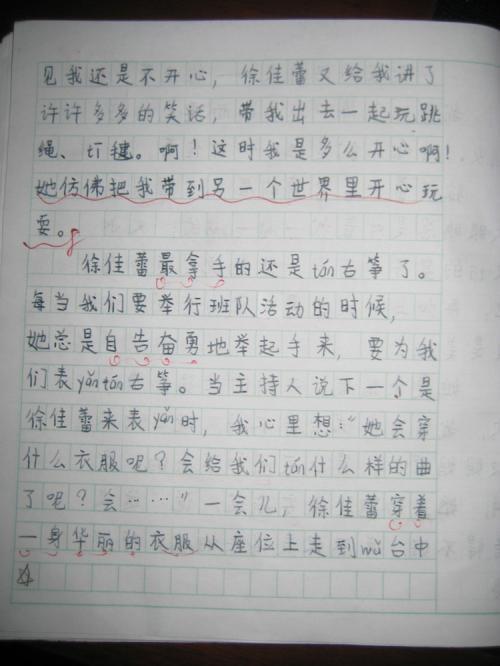 见我还是不开心，徐佳蕾又给我讲了
许许多多的笑话，带我出去一起玩跳
绳、tī毽。啊！这时我是多么开心啊！
她仿佛把我带到另一个世界里开心玩
耍。
徐佳蕾最拿手的还是tán古筝了。
每当我们要举行班队活动的时候，
她总是自告奋勇地举起手来，要为我
们表yǎn tán古筝。当主持人说下一个是
徐佳蕾来表yǎn时，我心里想：“她会穿
什么衣服呢？会给我们tán什么样的曲
了呢？会……”一会儿，徐佳蕾穿着
一身华丽的衣服从座位上走到wǔ台中